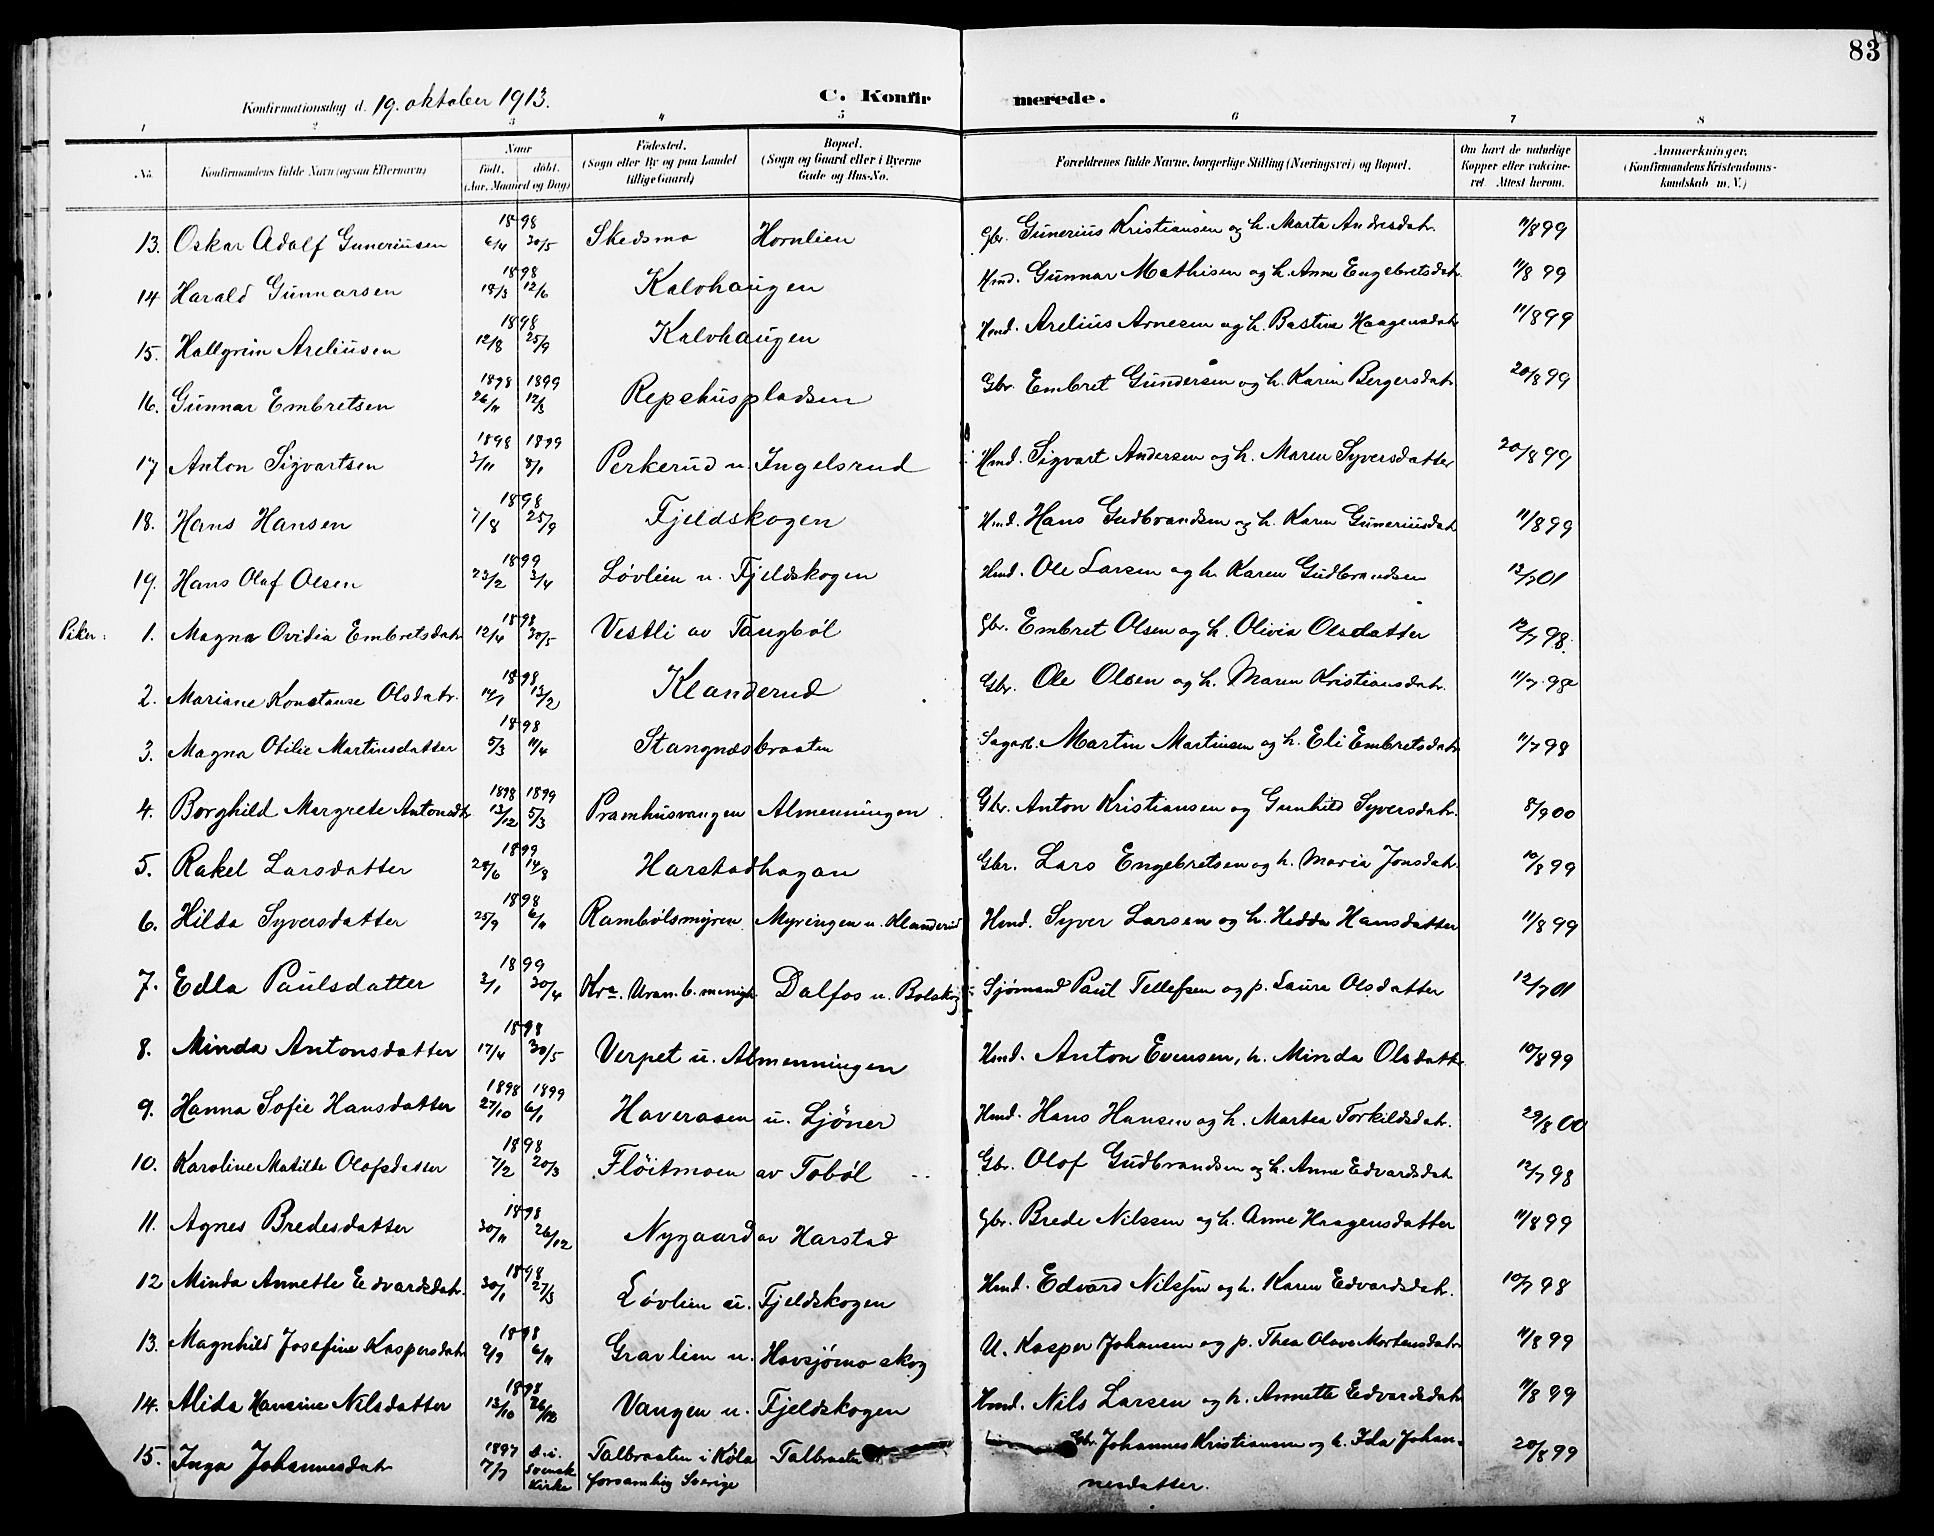 83
Konfirmationsdag d. 19. oktober 1913. C. Konfirmerede.
1 2 3 4 5 6 7 8
No. Konfirmandens fulde Navn (ogsaa Efternavn) Naar født. døbt. (Aar, Maaned og Dag) Fødested. (Sogn eller By og paa Landet tillige Gaard) Bopæl. (Sogn og Gaard eller i Byerne Gade og Hus-No. Forældrenes fulde Navne, borgerlige Stilling (Næringsvei) og Bopæl. Om havt de naturlige Kopper eller vakcineret. Attest herom. Anmærkninger. (Konfirmandens Kristendomskundskab m. V.)
13. Oskar Adolf Guneriusen 1898 6/4 30/5 Skedsmo Hornlien Gbr. Gunerius Kristiansen og h. Marta Andresdatr. 11/8 99
14 Harald Gunnarsen 1898 18/3 12/6 Kalvhaugen Hmd. Gunnar Mathisen og h. Anne Engebretsdatr. 11/8 99
15. Hallgrim Areliusen 1898 12/8 25/9 Kalvhaugen Hmd. Arelius Arnesen og h. Bastine Haagensdatr 11/8 99
16. Gunnar Embretsen 1898 26/11 1899 12/3 Repshuspladsen Gbr. Embret Gundersen og h. Karen Bergersdatr. 20/8 99
17 Anton Sigvartsen 1898 2/11 1899 8/1 Perkerud u. Ingelsrud Hmd. Sigvart Andersen og h. Maren Syversdatter 20/8 99
18. Hans Hansen 1898 7/8 25/9 Fjeldskogen Hmd. Hans Gudbrandsen og h. Karen Guneriusdat 11/8 99
19. Hans Olaf Olsen 1899 23/2 3/4 Løvlien u. Fjeldskogen Hmd. Ole Larsen og h. Karen Gudbrandsen 12/7 01
Piker: 1. Magna Ovidia Embretsdatr 1898 12/4 30/5 Vestli av Tangbøl Gbr. Embret Olsen og h. Olivia Olsdatter 12/7 98.
2. Mariane Konstanse Olsdatr. 1898 14/1 13/2 Klanderud Gbr. Ole Olsen og h. Maren Kristiansdatr. 11/7 98
3. Magna Otilie Martinsdatter 1898 5/3 11/4 Stangnæsbraaten Sagarb. Martin Martinsen og h. Eli Embretsdatr 11/7 98
4. Borghild Margrete Antonsdtr 1898 13/12 1899 5/3 Pramhusvangen Almenningen Gbr. Anton Kristiansen og Gunhild Syversdatr. 8/9 00
5. Rakel Larsdatter 1899 28/6 14/8 Harstadhagan Gbr. Lars Engebretsen og h. Maria Jonsdatr. 10/8 99
6. Hilda Syversdatter 1898 25/9 6/11 Rambølsmyren Myringen u. Klanderud Hmd. Syver Larsen og h. Hedda Hansdatter 11/8 99
7. Edla Paulsdatter 1899 2/1 30/4 Kra. Uran. b. menigh. Dalfos u. Bolskog Sjømand Paul Tellefsen og p. Laura Olsdatter 12/7 01
8. Minda Antonsdatter 1898 17/4 30/5 Verpet u. Almenningen Hmd. Anton Evensen, h. Minda Olsdatr. 10/8 99
9. Hanna Sofie Hansdatter 1898 27/10 1899 6/1 Haveraasen u. Sjøner Hmd. Hans Hansen og h. Martea Torkildsdatr. 29/8 00
10. Karoline Matilde Olofsdatter 1898 7/2 20/3 Fløitmoen av Tobøl Gbr. Olof Gudbrandsen og h. Anne Edvardsdat. 12/7 98
11. Agnes Bredesdatter 1898 30/11 26/12 Nygaard av Harstad Gbr. Brede Nilssen og h. Anne Haagensdatter 11/8 99
12 Minda Annette Edvardsdatr. 1898 30/1 27/3 Løvlien u. Fjeldskogen Hmd. Edvard Nilssen og h. Karen Edvardsdatr. 10/7 98
13. Magnhild Josefine Kaspersdatr 1898 2/9 6/11 Gravlien u. Havsjømoskog U. Kasper Johansen og p. Thea Olava Mortensdatr 11/8 99
14. Alida Hansine Nilsdatter 1898 13/10 26/12 Vangen u. Fjeldskogen Hmd. Nils Larsen og h. Annette Edvardsdatr 11/8 99
15. Inga Johannesdatr 1897 7/7 d. i. Svensk Kirke Talbraaten i Køla forsamling Sverige Talbraaten Gbr. Johannes Kristiansen og h. Ida Johan-
nesdatter. 20/8 99